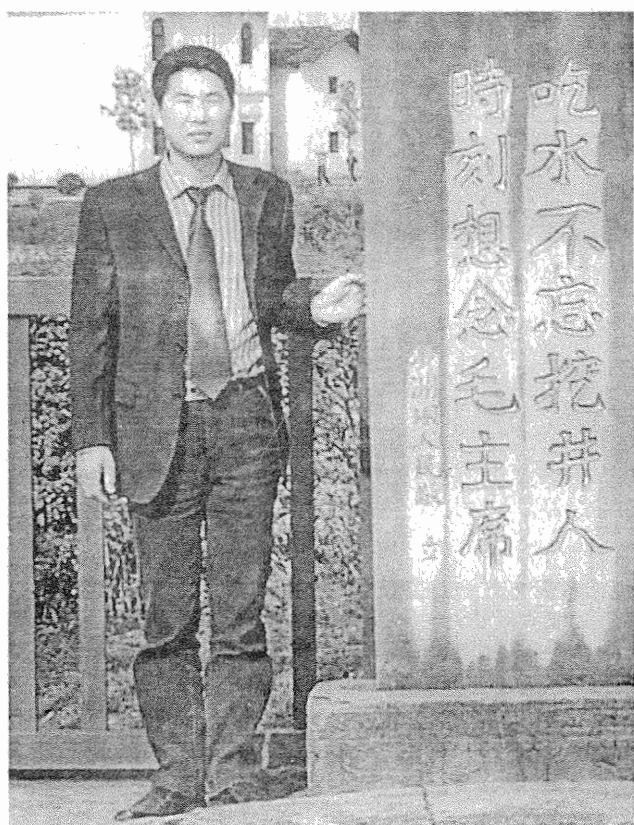 吃水不忘挖井人
時刻想念毛主席